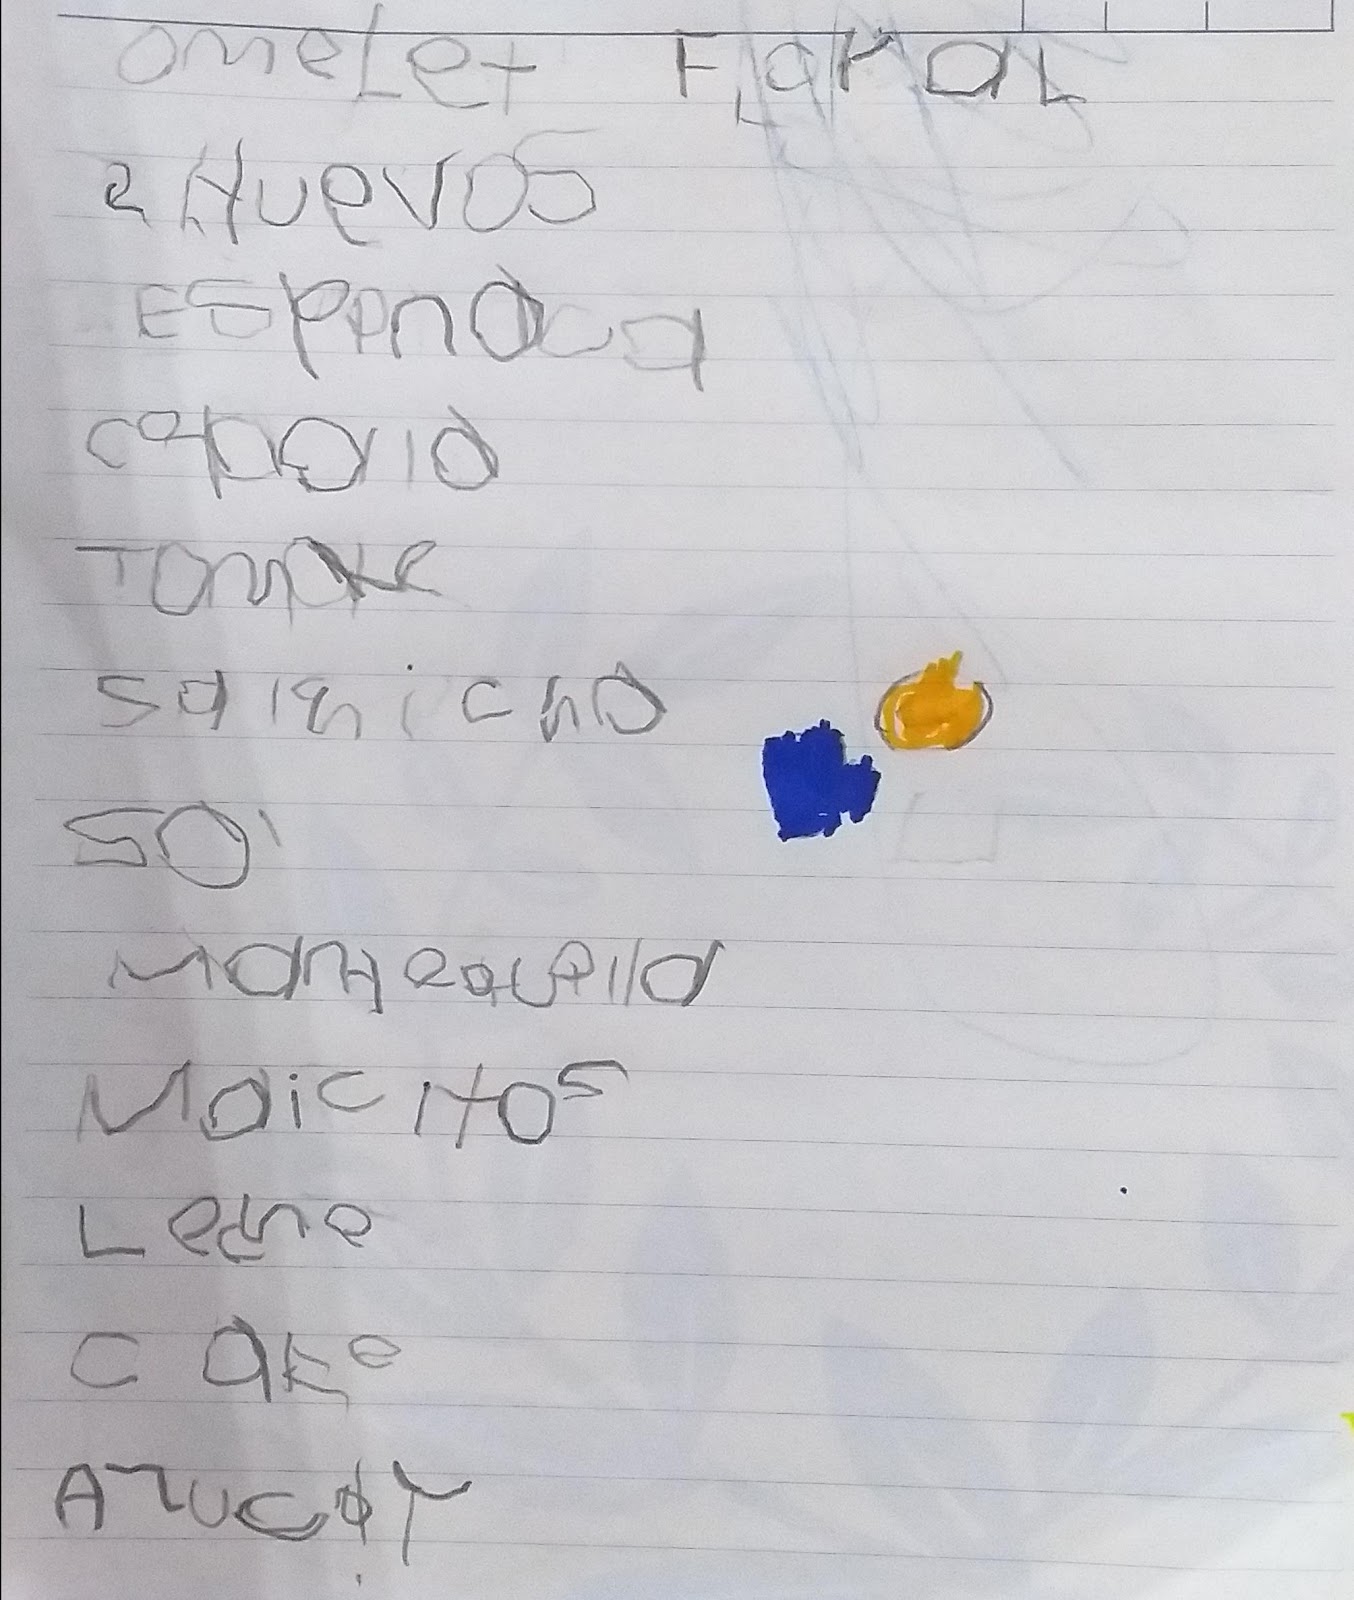 omeLet
2 Huevos
Espinaca
Tomate
Salchicha
Sal
Mantequilla
Maicitos
Leche
Cafe
Azucar